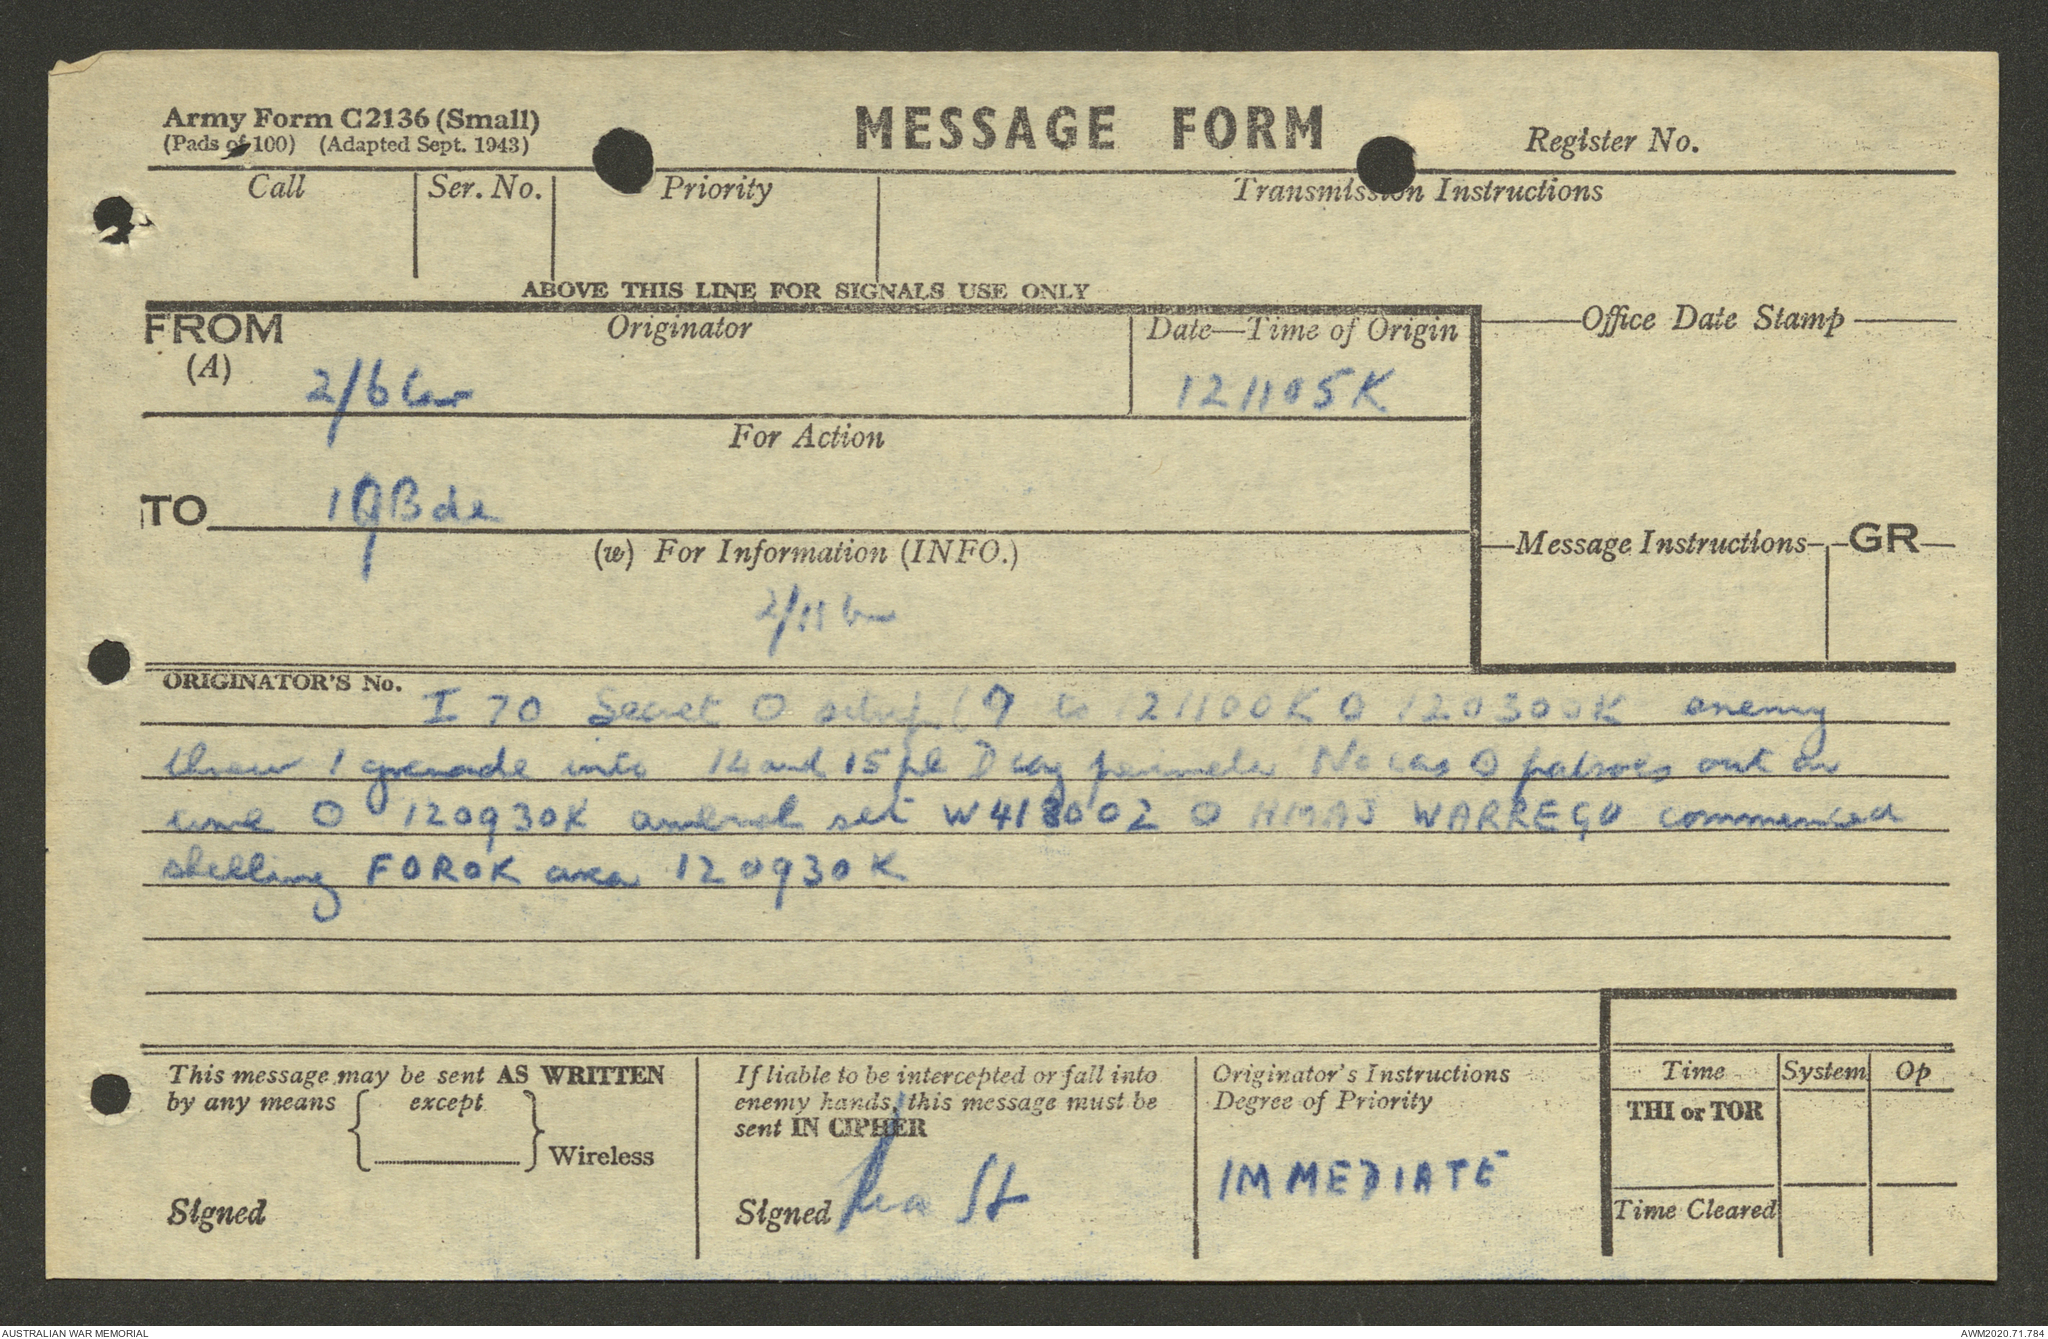 Army Form C2136 (Small)
(Pads of 100) (Adapted Sept. 1943)
MESSAGE FORM
Register No.
Call
Ser. No.
Priority
Transmission Instructions
ABOVE THIS LINE FOR SIGNALS USE ONLY
FROM
(A)
Originator
2/6 Cav
Date—Time of Origin
121105K
Office Date Stamp
For Action
TO
19 Bde
(w) For Information (INFO.)
2/11 Bn
Message Instructions
GR
ORIGINATOR'S No.
I 70 Secret O sitrep 9 to 121100K O 120300K enemy
threw 1 grenade into 14 and 15 pl D coy perimeter No cas O patrols out on
time O 120930K ambush set W418002 O HMAS WARREGO commenced
shelling FOROK area 120930K
This message may be sent AS WRITTEN
by any means except
Wireless
Signed
If liable to be intercepted or fall into
enemy hands, this message must be
sent IN CIPHER
Signed
Originator's Instructions
Degree of Priority
IMMEDIATE
Time System Op
THI or TOR
Time Cleared
AUSTRALIAN WAR MEMORIAL
AWM2020.71.784